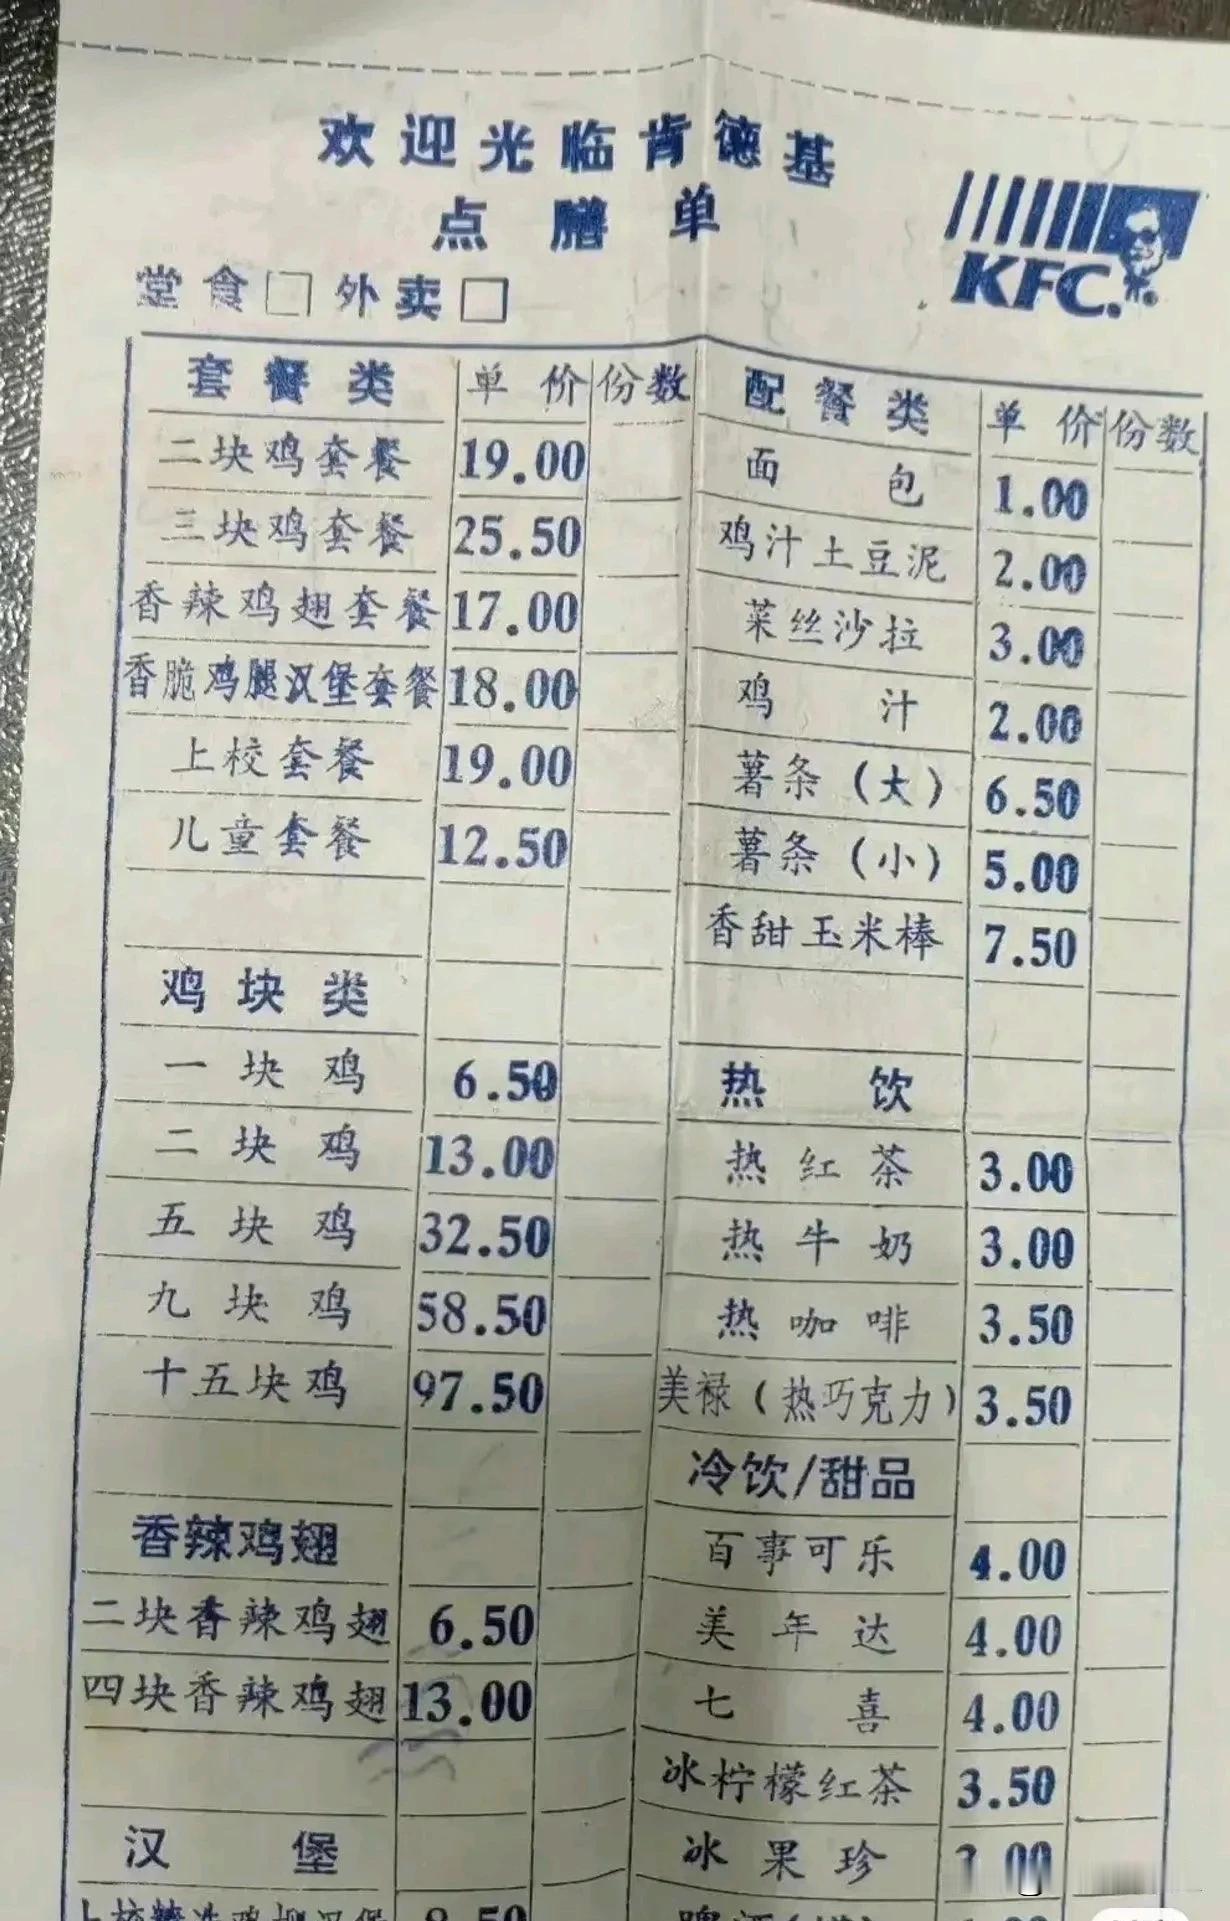 欢迎光临肯德基
点膳单
KFC.
堂食□ 外卖□
套餐类 单价 份数
二块鸡套餐 19.00
三块鸡套餐 25.50
香辣鸡翅套餐 17.00
香脆鸡腿汉堡套餐 18.00
上校套餐 19.00
儿童套餐 12.50
鸡块类
一块鸡 6.50
二块鸡 13.00
五块鸡 32.50
九块鸡 58.50
十五块鸡 97.50
香辣鸡翅
二块香辣鸡翅 6.50
四块香辣鸡翅 13.00
汉堡
上校精选鸡柳汉堡 8.50
配餐类 单价 份数
面包 1.00
鸡汁土豆泥 2.00
菜丝沙拉 3.00
鸡汁 2.00
薯条(大) 6.50
薯条(小) 5.00
香甜玉米棒 7.50
热饮
热红茶 3.00
热牛奶 3.00
热咖啡 3.50
美禄(热巧克力) 3.50
冷饮/甜品
百事可乐 4.00
美年达 4.00
七喜 4.00
冰柠檬红茶 3.50
冰果珍
啤酒